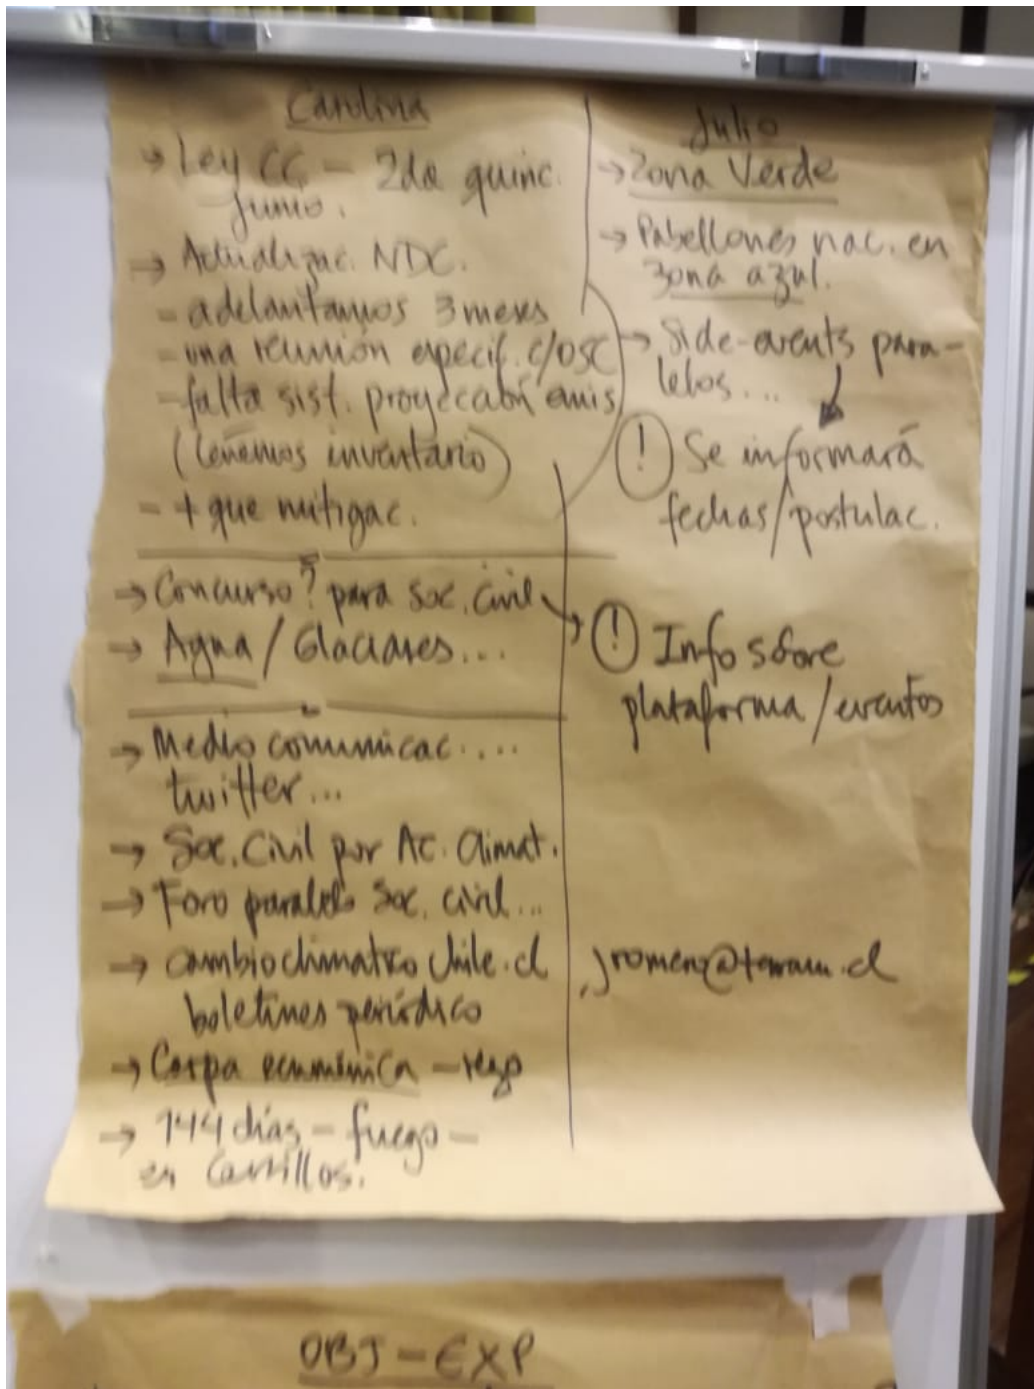 Carolina
→ Ley CC – 2da quinc.
Junio.
→ Actualizac. NDC.
- adelantamos 3 meses
- una reunión especif. c/OSC
- falta sist. proyección emis
(tenemos inventario)
- + que mitigac.
→ Concurso? para Soc. Civil
→ Agua / Glaciares...
→ Medio comunicac....
twitter...
→ Soc. Civil por Ac. Climat.
→ Foro paralelo Soc. civil...
→ cambioclimatico chile.cl
boletines periódico
→ Carpa ecuménica –
→ 144 días – fuego –
en Cerrillos.
Julio
→ Zona Verde
→ Pabellones nac. en
zona azul.
→ Side-events para-
lelos...
(!) Se informará
fechas/postulac.
(!) Info sobre
plataforma/eventos
jromero@terram.cl
OBJ – EXP